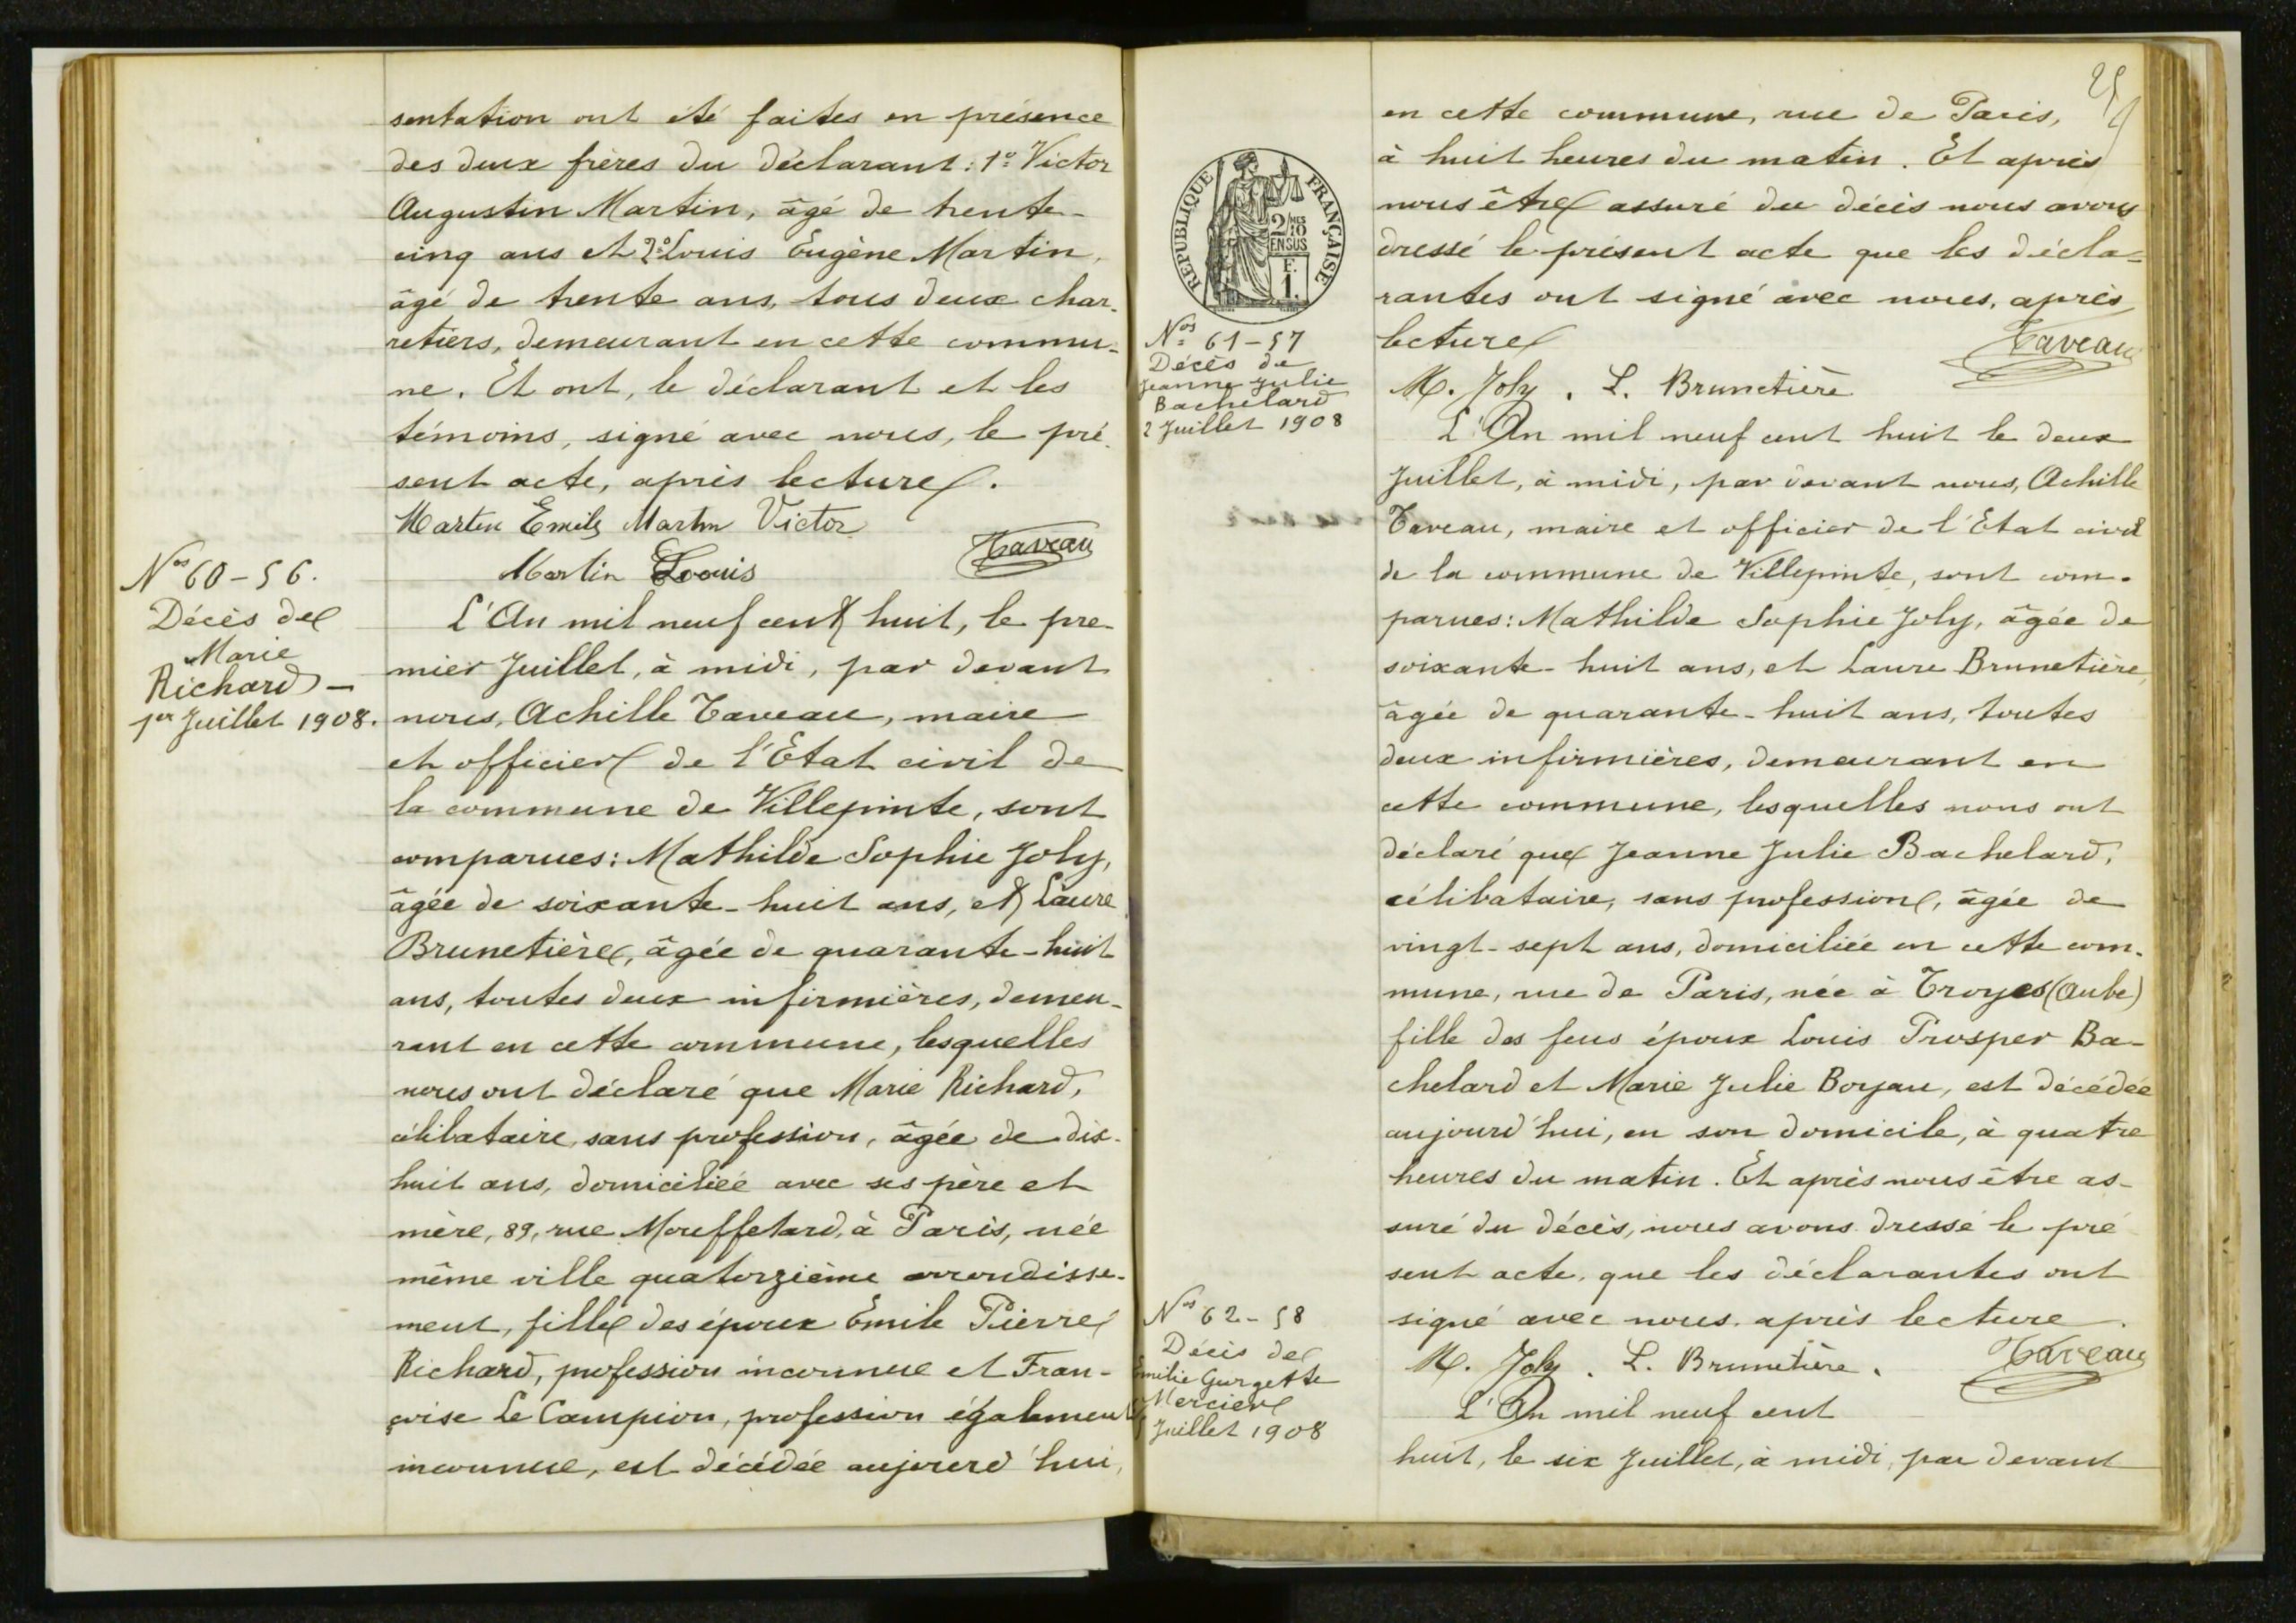 sentation ont été faites en présence
des deux frères du déclarant: 1º Victor
Augustin Martin, âgé de trente-
cinq ans et 2º Louis Eugène Martin,
âgé de trente ans, tous deux char-
retiers, demeurant en cette commu-
ne. Et ont, le déclarant et les
témoins, signé avec nous, le pré-
sent acte, après lecture.
Martin Emile Martin Victor
Martin Louis Taveau
Nos 60-56.
Décès de
Marie
Richard -
1er Juillet 1908.
L'An mil neuf cent huit, le pre-
mier Juillet, à midi, par devant
nous, Achille Taveau, maire
et officier de l'Etat civil de
la commune de Villepinte, sont
comparues: Mathilde Sophie Joly,
âgée de soixante-huit ans, et Laure
Brunetière, âgée de quarante-huit
ans, toutes deux infirmières, demeu-
rant en cette commune, lesquelles
nous ont déclaré que Marie Richard,
célibataire, sans profession, âgée de dix-
huit ans, domiciliée avec ses père et
mère, 89, rue Mouffetard, à Paris, née
même ville quatorzième arrondisse-
ment, fille des époux Emile Pierre
Richard, profession inconnue et Fran-
çoise Le Campion, profession également
inconnue, est décédée aujourd'hui,
en cette commune, rue de Paris,
à huit heures du matin. Et après
nous être assuré du décès nous avons
dressé le présent acte que les décla-
rantes ont signé avec nous, après
lecture
Taveau
M. Joly. L. Brunetière
RÉPUBLIQUE FRANÇAISE
2/10MES
EN SUS
F.
1.
Nos 61-57
Décès de
Jeanne Julie
Bachelard
2 Juillet 1908
L'An mil neuf cent huit le deux
Juillet, à midi, par devant nous, Achille
Taveau, maire et officier de l'Etat civil
de la commune de Villepinte, sont com-
parues: Mathilde Sophie Joly, âgée de
soixante-huit ans, et Laure Brunetière,
âgée de quarante-huit ans, toutes
deux infirmières, demeurant en
cette commune, lesquelles nous ont
déclaré que Jeanne Julie Bachelard,
célibataire, sans profession, âgée de
vingt-sept ans, domiciliée en cette com-
mune, rue de Paris, née à Troyes (Aube)
fille des feus époux Louis Prosper Ba-
chelard et Marie Julie Boyau, est décédée
aujourd'hui, en son domicile, à quatre
heures du matin. Et après nous être as-
suré du décès, nous avons dressé le pré
sent acte, que les déclarantes ont
signé avec nous après lecture.
M. Joly. L. Brunetière. Taveau
Nos 62-58
Décès de
Emilie Gurgette
Mercier
Juillet 1908
L'An mil neuf cent
huit, le six Juillet, à midi, par devant